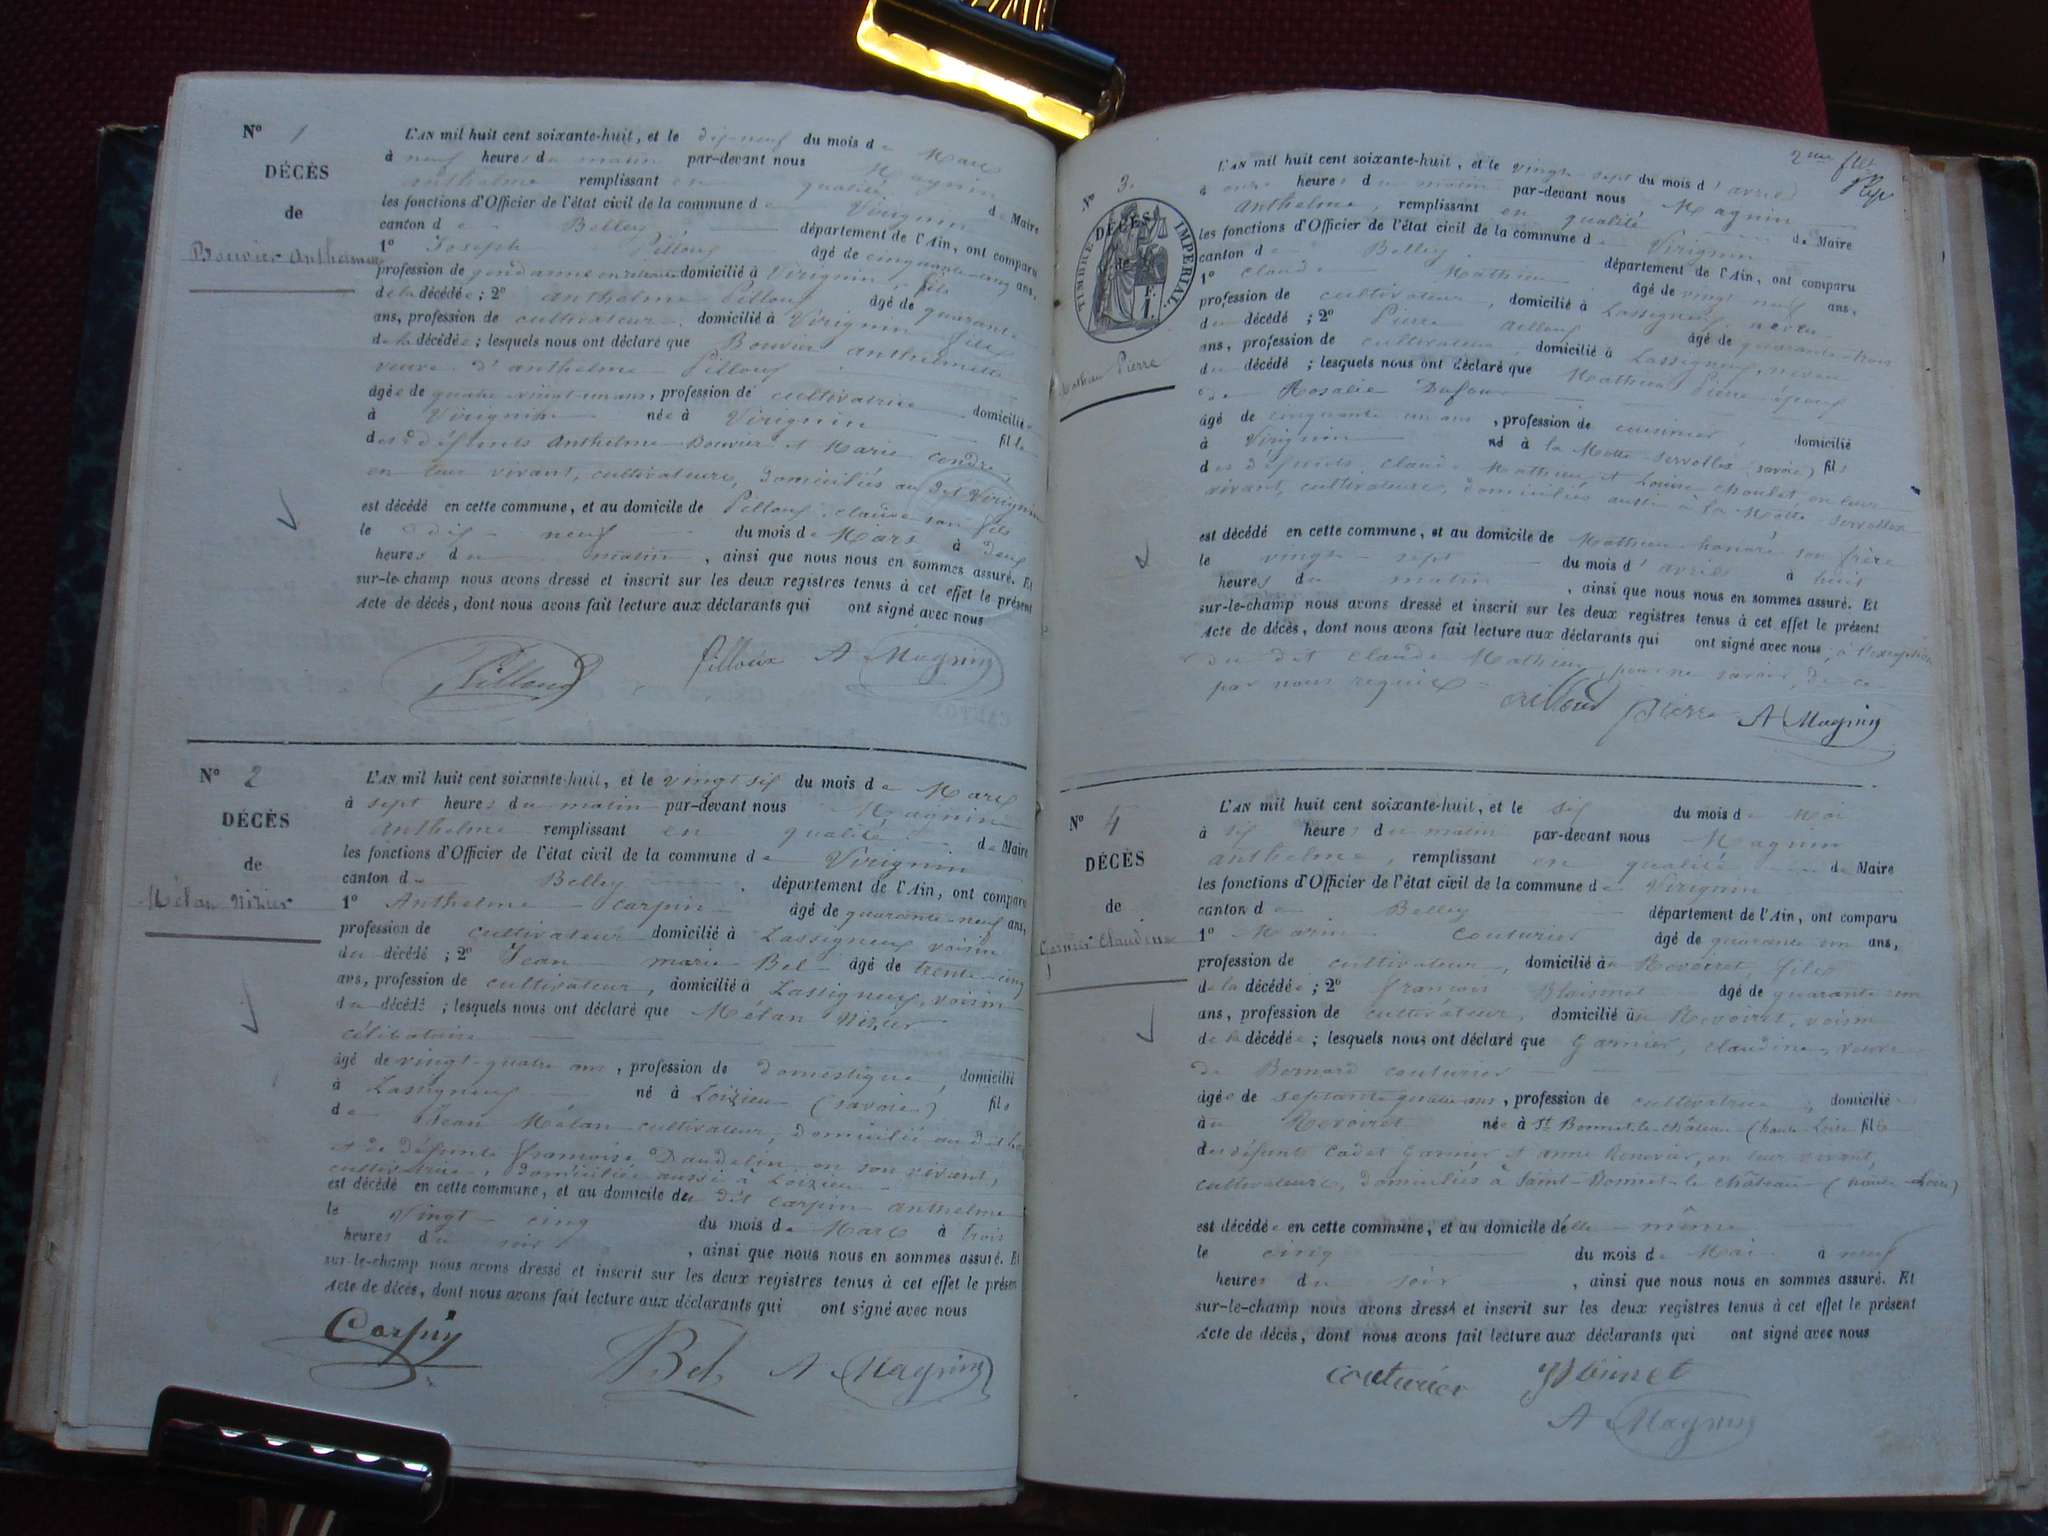 N° 1
DÉCÈS
de
Bouvier Anthelmette
L'AN mil huit cent soixante-huit, et le dix-neuf du mois de Mars
à neuf heures du matin par-devant nous Magnin
Anthelme remplissant en qualité de Maire
les fonctions d'Officier de l'état civil de la commune de Virignin
canton de Belley, département de l'Ain, ont comparu
1° Joseph Pilloux âgé de cinquante-cinq ans,
profession de gendarme en retraite domicilié à Virignin, fils
de la décédée; 2° anthelme Pilloux âgé de quarante
ans, profession de cultivateur, domicilié à Virignin fils
de la décédée; lesquels nous ont déclaré que Bouvier anthelmette
veuve d'anthelme Pilloux
âgée de quatre-vingt-un ans, profession de cultivatrice domiciliée
à Virignin née à Virignin fille
des défunts Anthelme Bouvier et Marie
en leur vivant, cultivateurs, domiciliés au dit Virignin
est décédé en cette commune, et au domicile de Pilloux, claude son fils
le dix-neuf du mois de Mars à deux
heures du matin, ainsi que nous nous en sommes assuré. Et
sur-le-champ nous avons dressé et inscrit sur les deux registres tenus à cet effet le présent
Acte de décès, dont nous avons fait lecture aux déclarants qui ont signé avec nous
Pilloux pilloux A Magnin
N° 2
DÉCÈS
de
Mélan Nizier
L'AN mil huit cent soixante-huit, et le vingt six du mois de Mars
à sept heures du matin par-devant nous Magnin
Anthelme remplissant en qualité de Maire
les fonctions d'Officier de l'état civil de la commune de Virignin
canton de Belley, département de l'Ain, ont comparu
1° Anthelme Carpin âgé de quarante-neuf ans,
profession de cultivateur domicilié à Lassigneux voisin
du décédé; 2° Jean marie Bel âgé de trente-cinq
ans, profession de cultivateur, domicilié à Lassigneux, voisin
du décédé; lesquels nous ont déclaré que Mélan Nizier
célibataire
âgé de vingt-quatre ans, profession de domestique, domicilié
à Lassigneux né à Loizieu (savoie) fils
de Jean Mélan cultivateur, domicilié au dit
et de défunte françoise Daudelin en son vivant,
cultivatrice, domiciliée aussi à Loizieu
est décédé en cette commune, et au domicile du dit Carpin anthelme
le vingt-cinq du mois de Mars à trois
heures du soir, ainsi que nous nous en sommes assuré. Et
sur-le-champ nous avons dressé et inscrit sur les deux registres tenus à cet effet le présent
Acte de décès, dont nous avons fait lecture aux déclarants qui ont signé avec nous
Carpin Bel A Magnin
2me
N° 3.
DÉCÈS
de
TIMBRE IMPÉRIAL
1 F.
Mathieu Pierre
L'AN mil huit cent soixante-huit, et le vingt sept du mois d'avril
à onze heures du matin par-devant nous Magnin
anthelme, remplissant en qualité de Maire
les fonctions d'Officier de l'état civil de la commune de Virignin
canton de Belley département de l'Ain, ont comparu
1° Claude Mathieu âgé de vingt neuf ans,
profession de cultivateur, domicilié à Lassigneux, neveu
du décédé; 2° Pierre âgé de quarante-trois
ans, profession de cultivateur, domicilié à Lassigneux, neveu
du décédé; lesquels nous ont déclaré que Mathieu Pierre époux
de Rosalie Dufour
âgé de cinquante un ans, profession de cuisinier, domicilié
à Virignin né à la Motte-Servollex (savoie) fils
des défunts Claude Mathieu et Louise Choulet, en leur
vivant, cultivateurs, domiciliés aussi à la Motte Servollex
est décédé en cette commune, et au domicile de Matthieu honoré son frère
le vingt-sept du mois d'avril à huit
heures du matin, ainsi que nous nous en sommes assuré. Et
sur-le-champ nous avons dressé et inscrit sur les deux registres tenus à cet effet le présent
Acte de décès, dont nous avons fait lecture aux déclarants qui ont signé avec nous, à l'exception
du dit Claude Mathieu pour ne savoir, de ce
par nous requis
pierre A Magnin
N° 4
DÉCÈS
de
Garnier Claudine
L'AN mil huit cent soixante-huit, et le six du mois de Mai
à six heures du matin par-devant nous Magnin
anthelme, remplissant en qualité de Maire
les fonctions d'Officier de l'état civil de la commune de Virignin
canton de Belley département de l'Ain, ont comparu
1° Marin Couturier âgé de quarante un ans,
profession de cultivateur, domicilié au Revoiret, fils
de la décédée; 2° françois âgé de quarante-un
ans, profession de cultivateur, domicilié au Revoiret, voisin
de la décédée; lesquels nous ont déclaré que Garnier, claudine, veuve
de Bernard couturier
âgée de septante quatre ans, profession de cultivatrice, domiciliée
au Revoiret née à St Bonnet-le-château (haute-Loire fille
des défunts Cadet Garnier et anne Renevier, en leur vivant,
cultivateurs, domiciliés à Saint-Bonnet-le château (haute-Loire)
est décédée en cette commune, et au domicile d'elle-même
le cinq du mois de Mai à neuf
heures du soir, ainsi que nous nous en sommes assuré. Et
sur-le-champ nous avons dressé et inscrit sur les deux registres tenus à cet effet le présent
Acte de décès, dont nous avons fait lecture aux déclarants qui ont signé avec nous
couturier
A Magnin